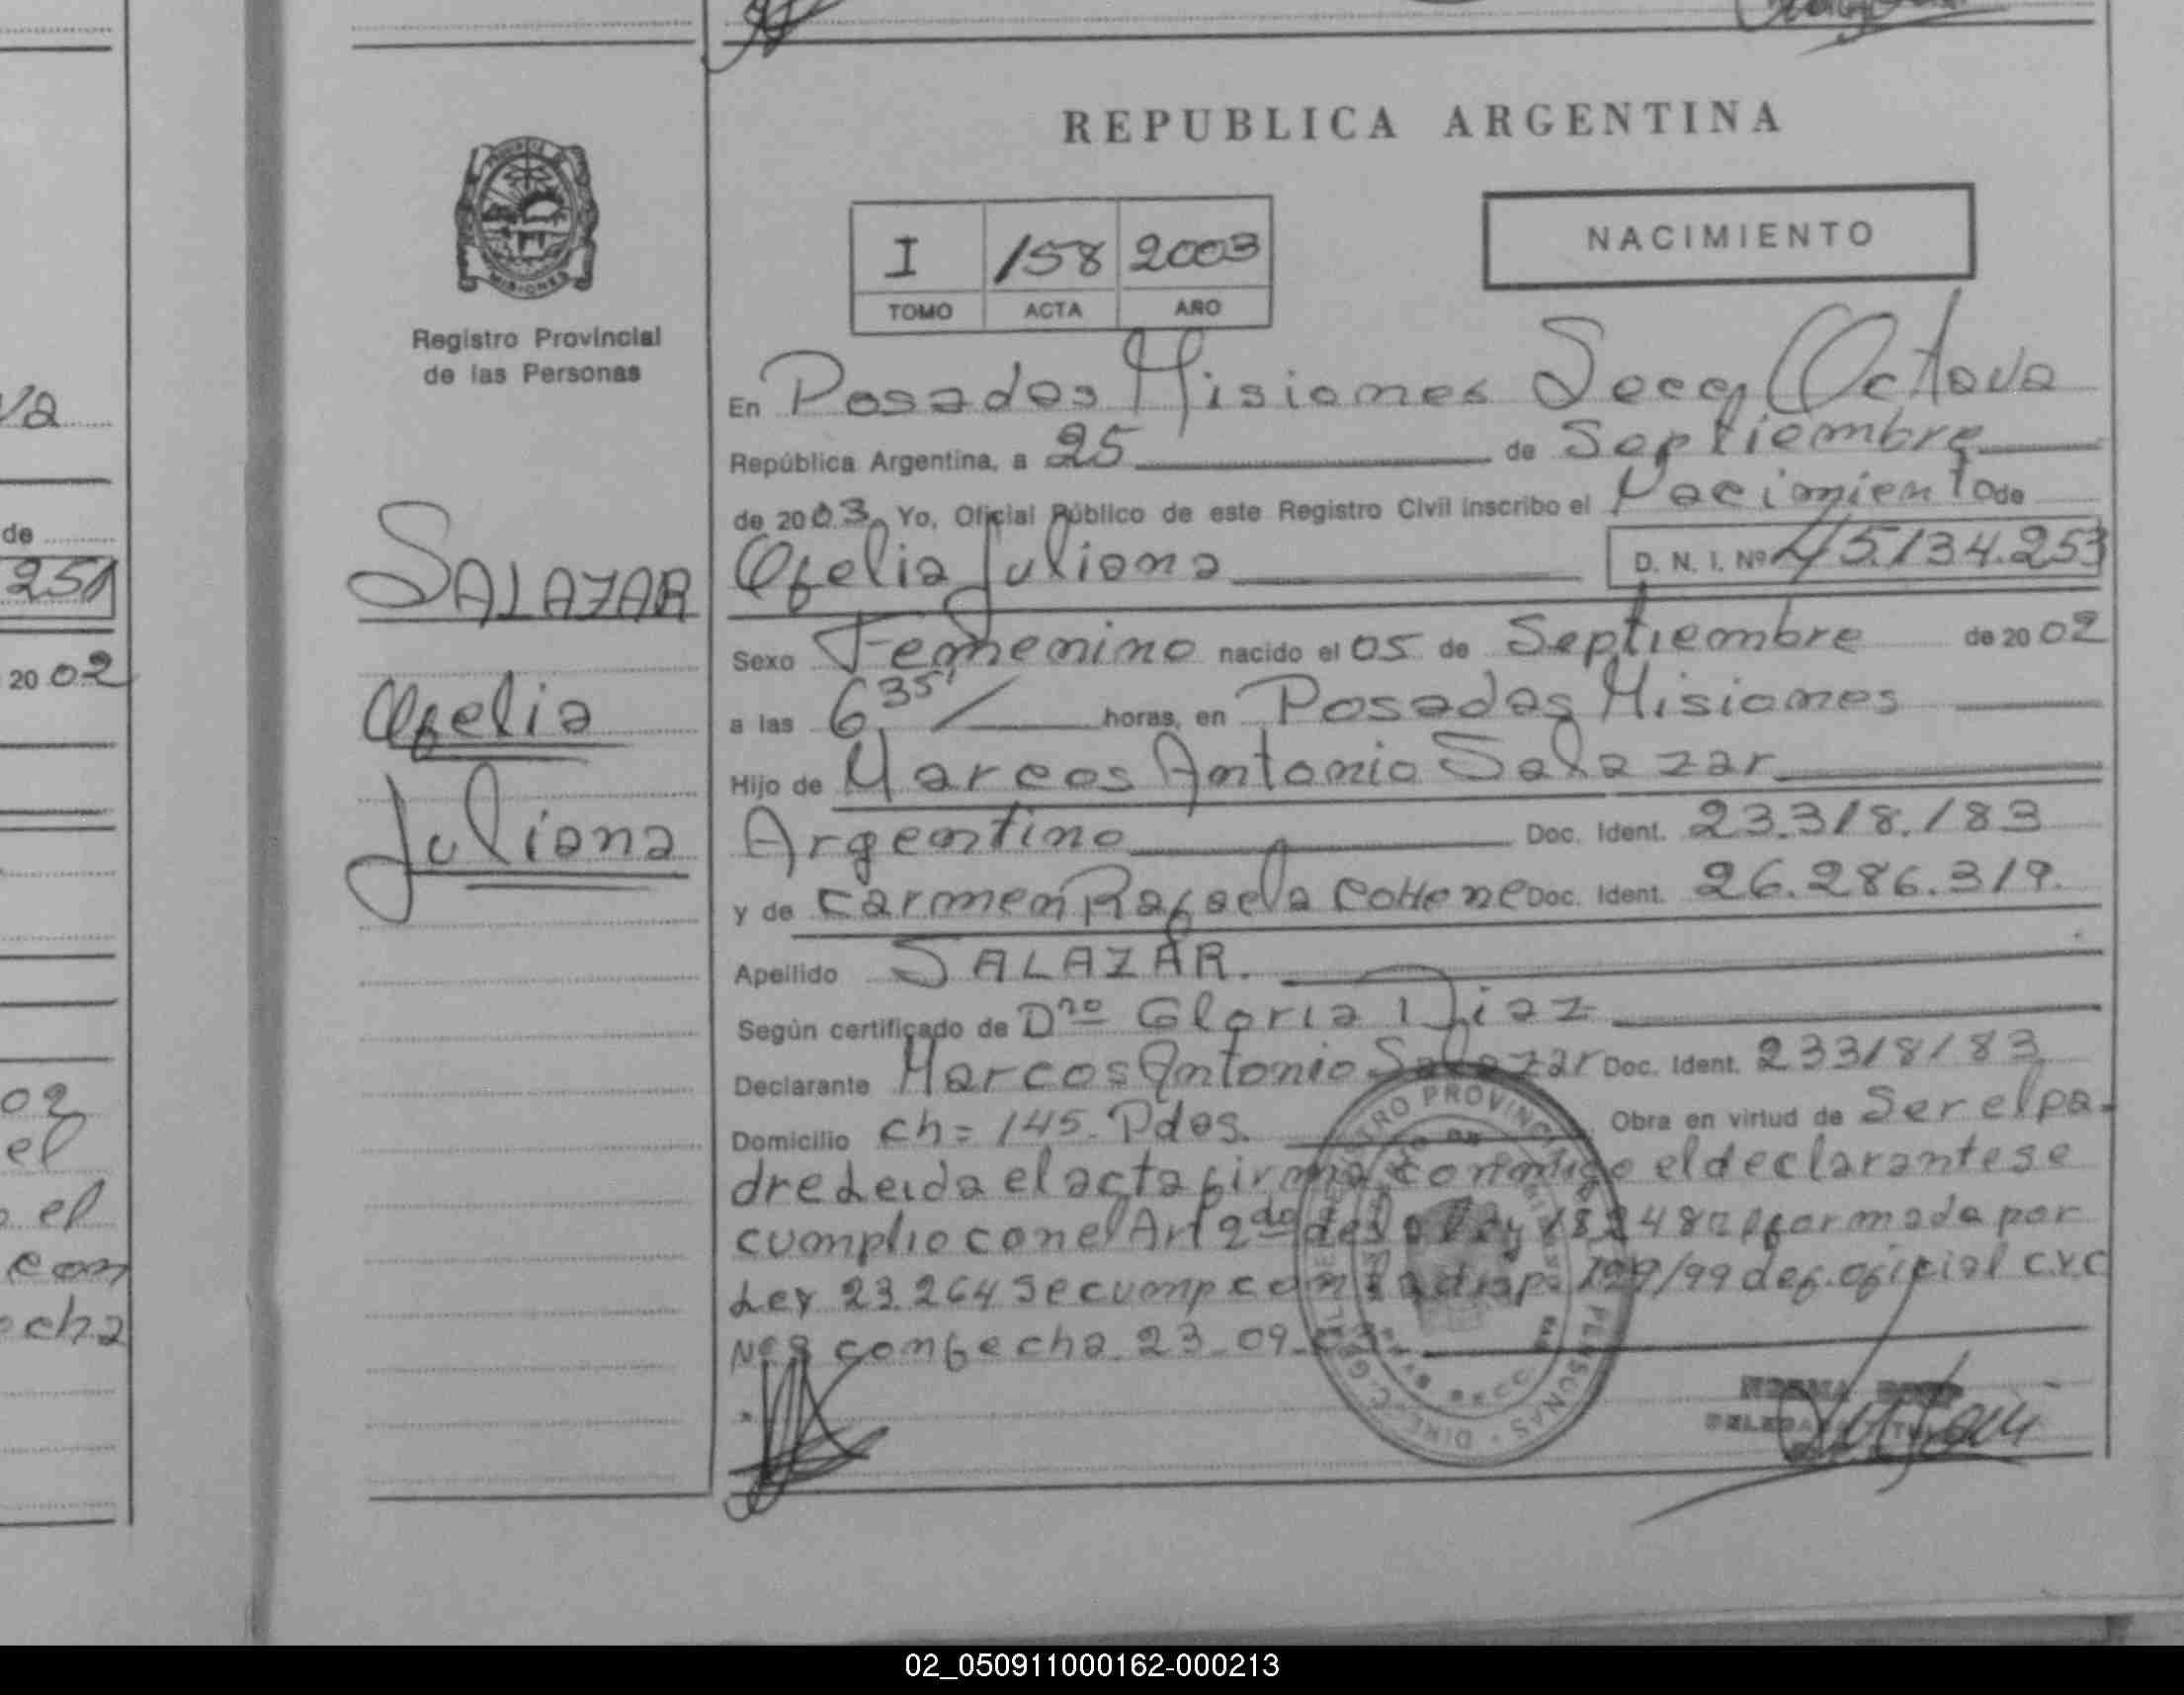 va
de
251
20 02
02
el
el
con
echa
Registro Provincial
de las Personas
SALAZAR
Ofelia
Juliana
REPUBLICA ARGENTINA
I 158 2003
TOMO ACTA AÑO
NACIMIENTO
En Posadas Misiones Secc Octava
República Argentina, a 25 de Septiembre
de 2003. Yo, Oficial Público de este Registro Civil inscribo el Nacimiento de
Ofelia Juliana D. N. I. Nº 45.134.253
Sexo Femenino nacido el 05 de Septiembre de 20 02
a las 6,35' horas, en Posadas Misiones
Hijo de Marcos Antonio Salazar
Argentino Doc. Ident. 23.318.183
y de Carmen Rafaela Doc. Ident. 26.286.319.
Apellido SALAZAR.
Según certificado de Dra Gloria Diaz
Declarante Marcos Antonio Salazar Doc. Ident. 23318183
Domicilio ch= 145. Pdas. Obra en virtud de Ser el pa-
dre Leida el acta firma conmigo el declarante se
cumplio con el Art 2do de la ley 18248 por
Ley 23.264 se cump con disp. /99 def. oficial C.Y.C
con fecha 23-09
REGISTRO PROVINCIAL DE LAS PERSONAS
02_050911000162-000213